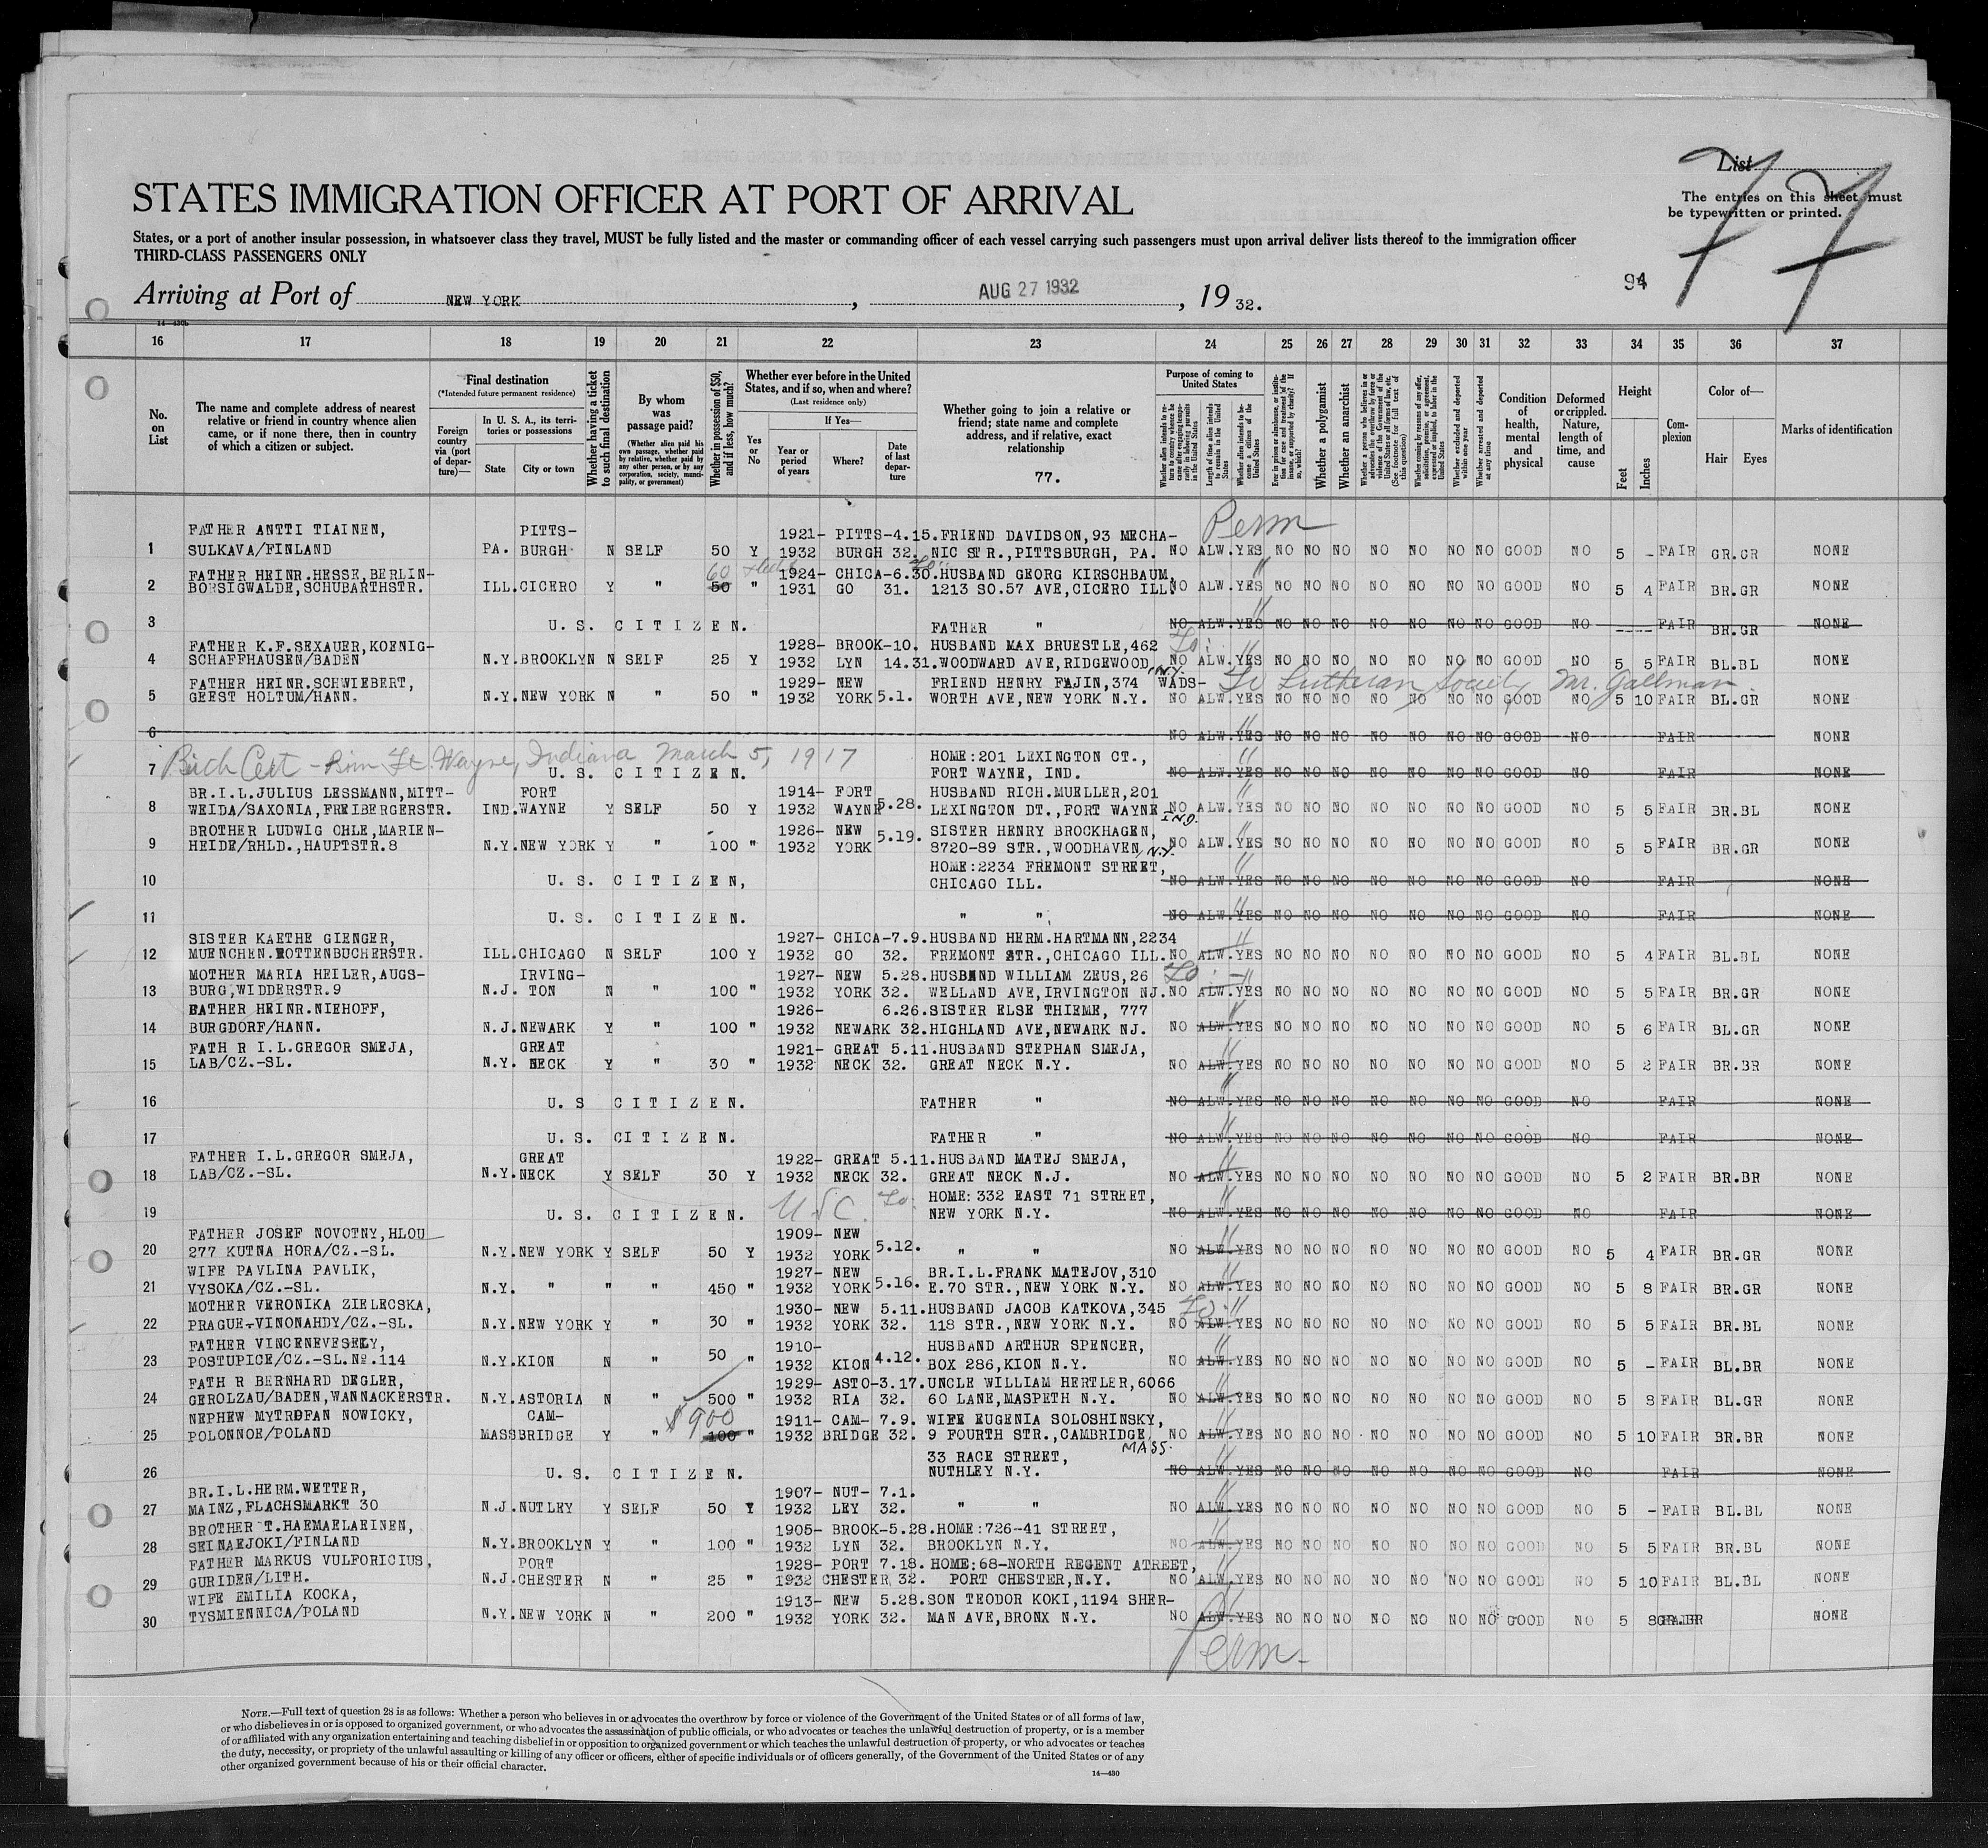 List
77
The entries on this sheet must
be typewritten or printed.
STATES IMMIGRATION OFFICER AT PORT OF ARRIVAL
States, or a port of another insular possession, in whatsoever class they travel, MUST be fully listed and the master or commanding officer of each vessel carrying such passengers must upon arrival deliver lists thereof to the immigration officer
THIRD-CLASS PASSENGERS ONLY
94
Arriving at Port of NEW YORK, AUG 27 1932, 19 32.
14—430b
16 17 18 19 20 21 22 23 24 25 26 27 28 29 30 31 32 33 34 35 36 37
No. on List
The name and complete address of nearest relative or friend in country whence alien came, or if none there, then in country of which a citizen or subject.
Final destination
(*Intended future permanent residence)
Foreign country via (port of departure)—
In U. S. A., its territories or possessions
State City or town
Whether having a ticket to such final destination
By whom was passage paid?
(Whether alien paid his own passage, whether paid by relative, whether paid by any other person, or by any corporation, society, municipality, or government)
Whether in possession of $50, and if less, how much?
Whether ever before in the United States, and if so, when and where?
(Last residence only)
Yes or No
If Yes—
Year or period of years
Where?
Date of last departure
Whether going to join a relative or friend; state name and complete address, and if relative, exact relationship
77.
Purpose of coming to United States
Whether alien intends to return to country whence he came after engaging temporarily in laboring pursuits in the United States
Length of time alien intends to remain in the United States
Whether alien intends to become a citizen of the United States
Ever in prison or almshouse, or institution for care and treatment of the insane, or supported by charity? If so, which?
Whether a polygamist
Whether an anarchist
Whether a person who believes in or advocates the overthrow by force or violence of the Government of the United States or all forms of law, etc. (See footnote for full text of this question)
Whether coming by reasons of any offer, solicitation, promise, or agreement, expressed or implied, to labor in the United States
Whether excluded and deported within one year
Whether arrested and deported at any time
Condition of health, mental and physical
Deformed or crippled. Nature, length of time, and cause
Height
Feet Inches
Complexion
Color of—
Hair Eyes
Marks of identification
Perm
FATHER ANTTI TIAINEN, PITTS- 1921- PITTS-4.15.FRIEND DAVIDSON,93 MECHA-
1 SULKAVA/FINLAND PA. BURGH N SELF 50 Y 1932 BURGH 32. NIC STR.,PITTSBURGH, PA. NO ALW.YES NO NO NO NO NO NO NO GOOD NO 5 - FAIR GR.GR NONE
FATHER HEINR.HESSE,BERLIN- 60 1924- CHICA-6.30.HUSBAND GEORG KIRSCHBAUM,
2 BORSIGWALDE,SCHUBARTHSTR. ILL.CICERO Y " 50 " 1931 GO 31. 1213 SO.57 AVE,CICERO ILL. NO ALW.YES NO NO NO NO NO NO NO GOOD NO 5 4 FAIR BR.GR NONE
3 U. S. CITIZEN. FATHER " NO ALW.YES NO NO NO NO NO NO NO GOOD NO ---- FAIR BR.GR NONE
FATHER K.F.SEXAUER,KOENIG- 1928- BROOK-10. HUSBAND MAX BRUESTLE,462
4 SCHAFFHAUSEN/BADEN N.Y.BROOKLYN N SELF 25 Y 1932 LYN 14.31.WOODWARD AVE,RIDGEWOOD N.Y. NO ALW.YES NO NO NO NO NO NO NO GOOD NO 5 5 FAIR BL.BL NONE
FATHER HEINR.SCHWIEBERT, 1929- NEW FRIEND HENRY FAJIN,374 WADS- To Lutheran Society Mr. Gallman
5 GEEST HOLTUM/HANN. N.Y.NEW YORK N " 50 " 1932 YORK 5.1. WORTH AVE,NEW YORK N.Y. NO ALW.YES NO NO NO NO NO NO NO GOOD NO 5 10 FAIR BL.GR NONE
6 NO ALW.YES NO NO NO NO NO NO NO GOOD NO FAIR NONE
Birth Cert - Born Ft. Wayne, Indiana March 5, 1917 HOME:201 LEXINGTON CT.,
7 U. S. CITIZEN. FORT WAYNE, IND. NO ALW.YES NO NO NO NO NO NO NO GOOD NO FAIR NONE
BR.I.L.JULIUS LESSMANN,MITT- FORT 1914- FORT HUSBAND RICH.MUELLER,201
8 WEIDA/SAXONIA,FREIBERGERSTR. IND.WAYNE Y SELF 50 Y 1932 WAYNE 5.28. LEXINGTON DT.,FORT WAYNE IND. NO ALW.YES NO NO NO NO NO NO NO GOOD NO 5 5 FAIR BR.BL NONE
BROTHER LUDWIG OHLE,MARIEN- 1926- NEW SISTER HENRY BROCKHAGEN,
9 HEIDE/RHLD.,HAUPTSTR.8 N.Y.NEW YORK Y " 100 " 1932 YORK 5.19. 8720-89 STR.,WOODHAVEN N.Y. NO ALW.YES NO NO NO NO NO NO NO GOOD NO 5 5 FAIR BR.GR NONE
HOME:2234 FREMONT STREET,
10 U. S. CITIZEN, CHICAGO ILL. NO ALW.YES NO NO NO NO NO NO NO GOOD NO FAIR NONE
11 U. S. CITIZEN. " " NO ALW.YES NO NO NO NO NO NO NO GOOD NO FAIR NONE
SISTER KAETHE GIENGER, 1927- CHICA-7.9.HUSBAND HERM.HARTMANN,2234
12 MUENCHEN.ROTTENBUCHERSTR. ILL.CHICAGO N SELF 100 Y 1932 GO 32. FREMONT STR.,CHICAGO ILL. NO ALW.YES NO NO NO NO NO NO NO GOOD NO 5 4 FAIR BL.BL NONE
MOTHER MARIA HEILER,AUGS- IRVING- 1927- NEW 5.28.HUSBAND WILLIAM ZEUS,26
13 BURG,WIDDERSTR.9 N.J. TON N " 100 " 1932 YORK 32. WELLAND AVE,IRVINGTON NJ. NO ALW.YES NO NO NO NO NO NO NO GOOD NO 5 5 FAIR BR.GR NONE
FATHER HEINR.NIEHOFF, 1926- 6.26.SISTER ELSE THIEME, 777
14 BURGDORF/HANN. N.J.NEWARK Y " 100 " 1932 NEWARK 32.HIGHLAND AVE,NEWARK NJ. NO ALW.YES NO NO NO NO NO NO NO GOOD NO 5 6 FAIR BL.GR NONE
FATH R I.L.GREGOR SMEJA, GREAT 1921- GREAT 5.11.HUSBAND STEPHAN SMEJA,
15 LAB/CZ.-SL. N.Y. NECK Y " 30 " 1932 NECK 32. GREAT NECK N.Y. NO ALW.YES NO NO NO NO NO NO NO GOOD NO 5 2 FAIR BR.BR NONE
16 U. S CITIZEN. FATHER " NO ALW.YES NO NO NO NO NO NO NO GOOD NO FAIR NONE
17 U. S. CITIZEN. FATHER " NO ALW.YES NO NO NO NO NO NO NO GOOD NO FAIR NONE
FATHER I.L.GREGOR SMEJA, GREAT 1922- GREAT 5.11.HUSBAND MATEJ SMEJA,
18 LAB/CZ.-SL. N.Y.NECK Y SELF 30 Y 1932 NECK 32. GREAT NECK N.J. NO ALW.YES NO NO NO NO NO NO NO GOOD NO 5 2 FAIR BR.BR NONE
HOME:332 EAST 71 STREET,
19 U. S. CITIZEN. USC NEW YORK N.Y. NO ALW.YES NO NO NO NO NO NO NO GOOD NO FAIR NONE
FATHER JOSEF NOVOTNY,HLOU 1909- NEW
20 277 KUTNA HORA/CZ.-SL. N.Y.NEW YORK Y SELF 50 Y 1932 YORK 5.12. " " NO ALW.YES NO NO NO NO NO NO NO GOOD NO 5 4 FAIR BR.GR NONE
WIFE PAVLINA PAVLIK, 1927- NEW BR.I.L.FRANK MATEJOV,310
21 VYSOKA/CZ.-SL. N.Y. " " " 450 " 1932 YORK 5.16. E.70 STR.,NEW YORK N.Y. NO ALW.YES NO NO NO NO NO NO NO GOOD NO 5 8 FAIR BR.GR NONE
MOTHER VERONIKA ZIELECSKA, 1930- NEW 5.11.HUSBAND JACOB KATKOVA,345
22 PRAGUE-VINONAHDY/CZ.-SL. N.Y.NEW YORK Y " 30 " 1932 YORK 32. 118 STR.,NEW YORK N.Y. NO ALW.YES NO NO NO NO NO NO NO GOOD NO 5 5 FAIR BR.BL NONE
FATHER VINCENEVESELY, 1910- HUSBAND ARTHUR SPENCER,
23 POSTUPICE/CZ.-SL.No.114 N.Y.KION N " 50 " 1932 KION 4.12. BOX 286,KION N.Y. NO ALW.YES NO NO NO NO NO NO NO GOOD NO 5 - FAIR BL.BR NONE
FATH R BERNHARD DEGLER, 1929- ASTO-3.17.UNCLE WILLIAM HERTLER,6066
24 GEROLZAU/BADEN,WANNACKERSTR. N.Y.ASTORIA N " 500 " 1932 RIA 32. 60 LANE,MASPETH N.Y. NO ALW.YES NO NO NO NO NO NO NO GOOD NO 5 8 FAIR BL.GR NONE
NEPHEW MYTROFAN NOWICKY, CAM- $900 1911- CAM- 7.9. WIFE EUGENIA SOLOSHINSKY,
25 POLONNOE/POLAND MASSBRIDGE Y " 100 " 1932 BRIDGE 32. 9 FOURTH STR.,CAMBRIDGE MASS. NO ALW.YES NO NO NO NO NO NO NO GOOD NO 5 10 FAIR BR.BR NONE
33 RACE STREET,
26 U. S. CITIZEN. NUTHLEY N.Y. NO ALW.YES NO NO NO NO NO NO NO GOOD NO FAIR NONE
BR.I.L.HERM.WETTER, 1907- NUT- 7.1.
27 MAINZ,FLACHSMARKT 30 N.J.NUTLEY Y SELF 50 Y 1932 LEY 32. " " NO ALW.YES NO NO NO NO NO NO NO GOOD NO 5 - FAIR BL.BL NONE
BROTHER T.HAEMAELAEINEN, 1905- BROOK-5.28.HOME:726-41 STREET,
28 SEINAEJOKI/FINLAND N.Y.BROOKLYN Y " 100 " 1932 LYN 32. BROOKLYN N.Y. NO ALW.YES NO NO NO NO NO NO NO GOOD NO 5 5 FAIR BR.BL NONE
FATHER MARKUS VULFORICIUS, PORT 1928- PORT 7.18. HOME:68-NORTH REGENT ATREET,
29 GURIDEN/LITH. N.J.CHESTER N " 25 " 1932 CHESTER 32. PORT CHESTER,N.Y. NO ALW.YES NO NO NO NO NO NO NO GOOD NO 5 10 FAIR BL.BL NONE
WIFE EMILIA KOCKA, 1913- NEW 5.28.SON TEODOR KOKI,1194 SHER-
30 TYSMIENNICA/POLAND N.Y.NEW YORK N " 200 " 1932 YORK 32. MAN AVE,BRONX N.Y. NO ALW.YES NO NO NO NO NO NO NO GOOD NO 5 8 GR.BR NONE
Perm
NOTE.—Full text of question 28 is as follows: Whether a person who believes in or advocates the overthrow by force or violence of the Government of the United States or of all forms of law,
or who disbelieves in or is opposed to organized government, or who advocates the assassination of public officials, or who advocates or teaches the unlawful destruction of property, or is a member
of or affiliated with any organization entertaining and teaching disbelief in or opposition to organized government or which teaches the unlawful destruction of property, or who advocates or teaches
the duty, necessity, or propriety of the unlawful assaulting or killing of any officer or officers, either of specific individuals or of officers generally, of the Government of the United States or of any
other organized government because of his or their official character.
14—430